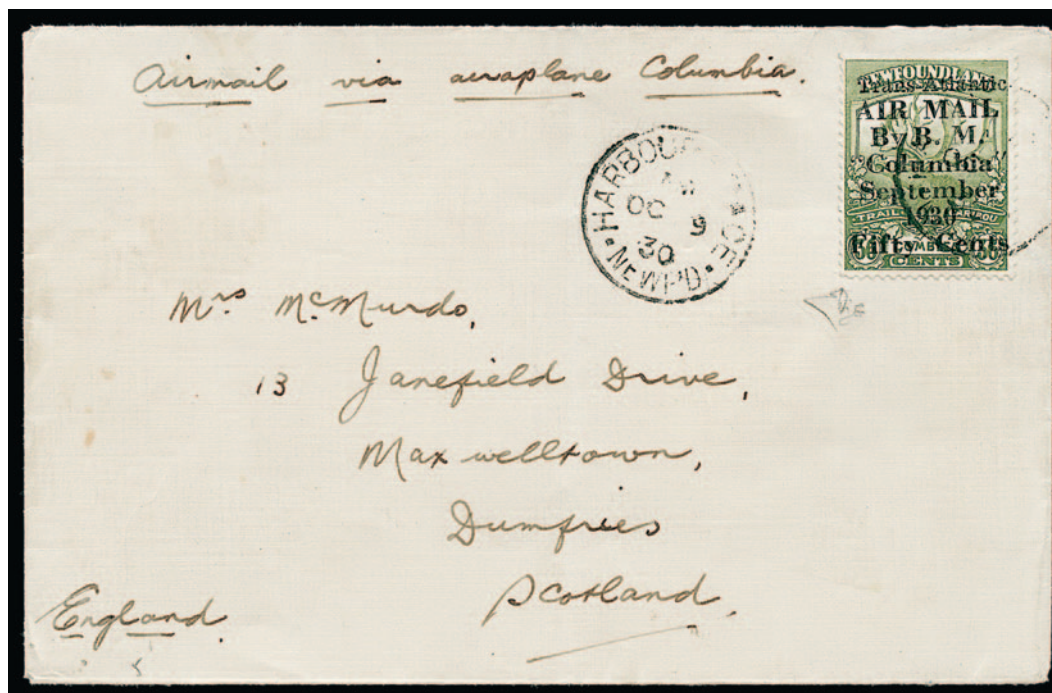 Airmail via aeraplane Columbia.
NEWFOUNDLAND
Trans-Atlantic
AIR MAIL
By B. M.
"Columbia"
September
1930
Fifty Cents
TRAIL CARIBOU
36 36
CENTS
HARBOUR GRACE
AM
OC 9
30
NEWF'D
Mrs McMurdo,
13 Janefield Drive,
Maxwelltown,
Dumfries
Scotland,
England.